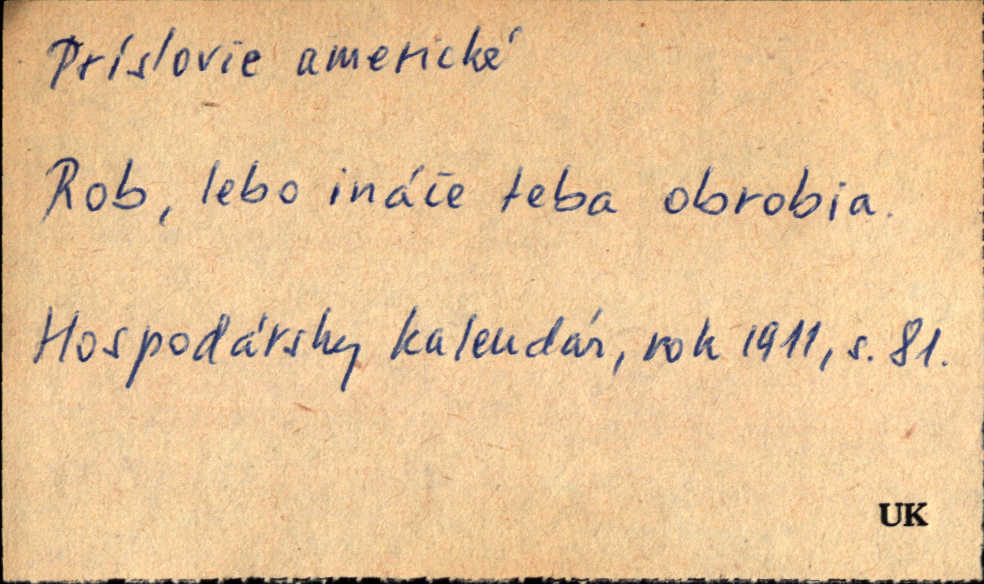 Príslovie americké
Rob, lebo ináče teba obrobia.
Hospodársky kalendár, rok 1911, s. 81.
UK